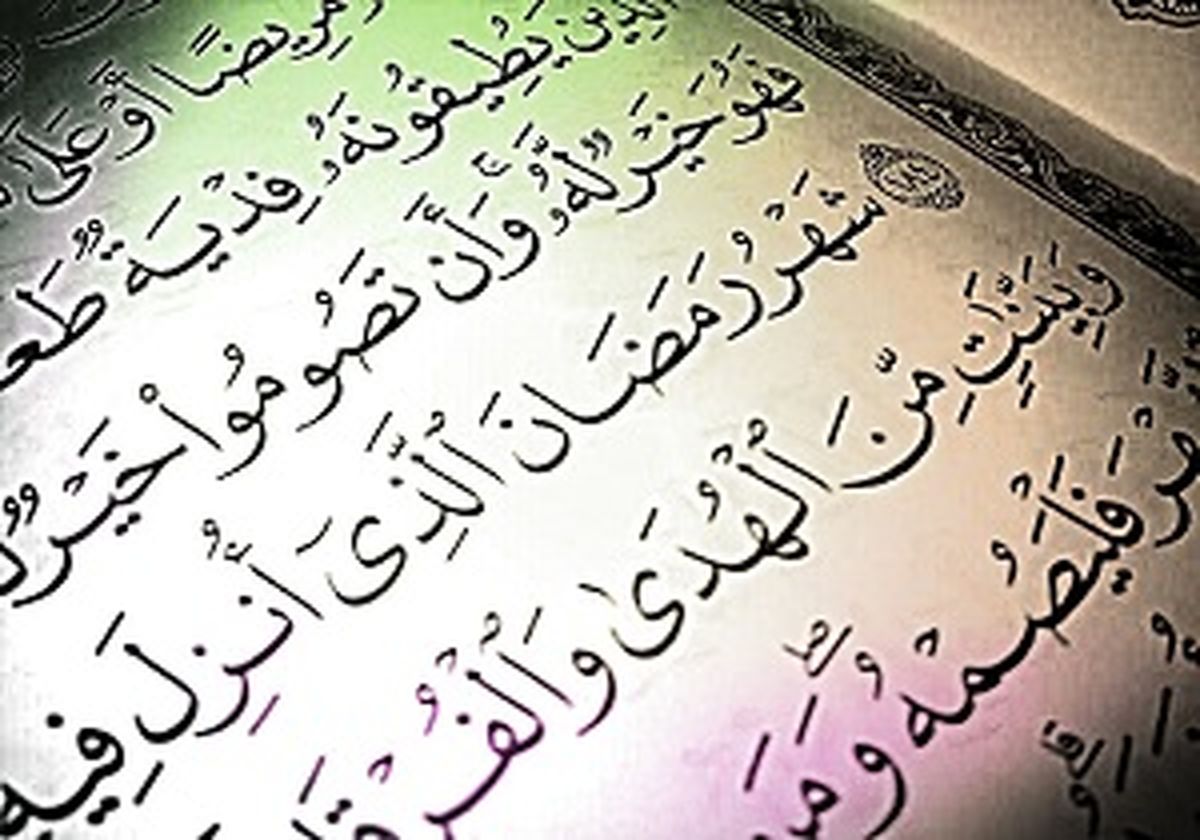 مَّرِيضًا أَوْ عَلَىٰ
الَّذِينَ يُطِيقُونَهُۥ فِدْيَةٌ
فَهُوَ خَيْرٌ لَّهُۥ وَأَن تَصُومُوا۟ خَيْرٌ
شَهْرُ رَمَضَانَ ٱلَّذِىٓ أُنزِلَ فِيهِ
وَبَيِّنَٰتٍ مِّنَ ٱلْهُدَىٰ وَٱلْفُرْقَانِ
فَلْيَصُمْهُ وَمَن